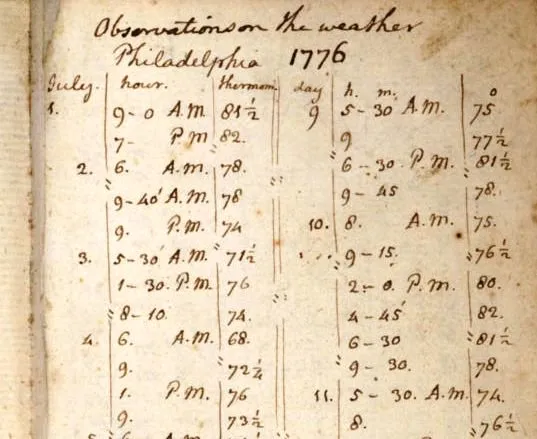 Observations on the weather
Philadelphia 1776
July. hour. thermom. day h. m. o
1. 9-0 A.M. 81½ 9 5-30 A.M. 75
7- P.M 82. 9 77½
2. 6. A.M. 78. 6-30 P.M. 81½
9-40' A.M. 78 9-45 78.
9. P.M. 74 10. 8. A.M. 75.
3. 5-30' A.M. 71½ 9-15. 76½
1-30. P.M. 76 2-0. P.M. 80.
8-10. 74. 4-45' 82.
4. 6. A.M. 68. 6-30 81½
9. 72¼ 9-30. 78.
1. P.M. 76 11. 5-30. A.M. 74.
9. 73½ 8. 76½